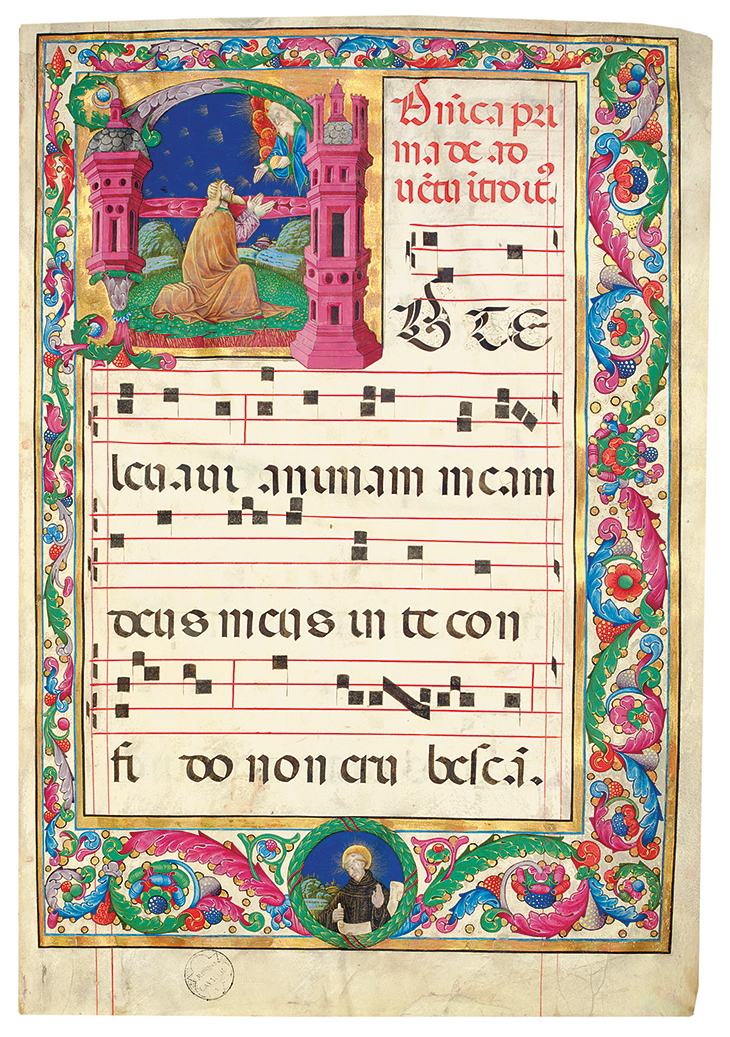 Dñica pri
ma de ad
uētu ītroitꝰ.
AD TE
leuaui animam meam
deus meus in te con
fi do non eru bescā.